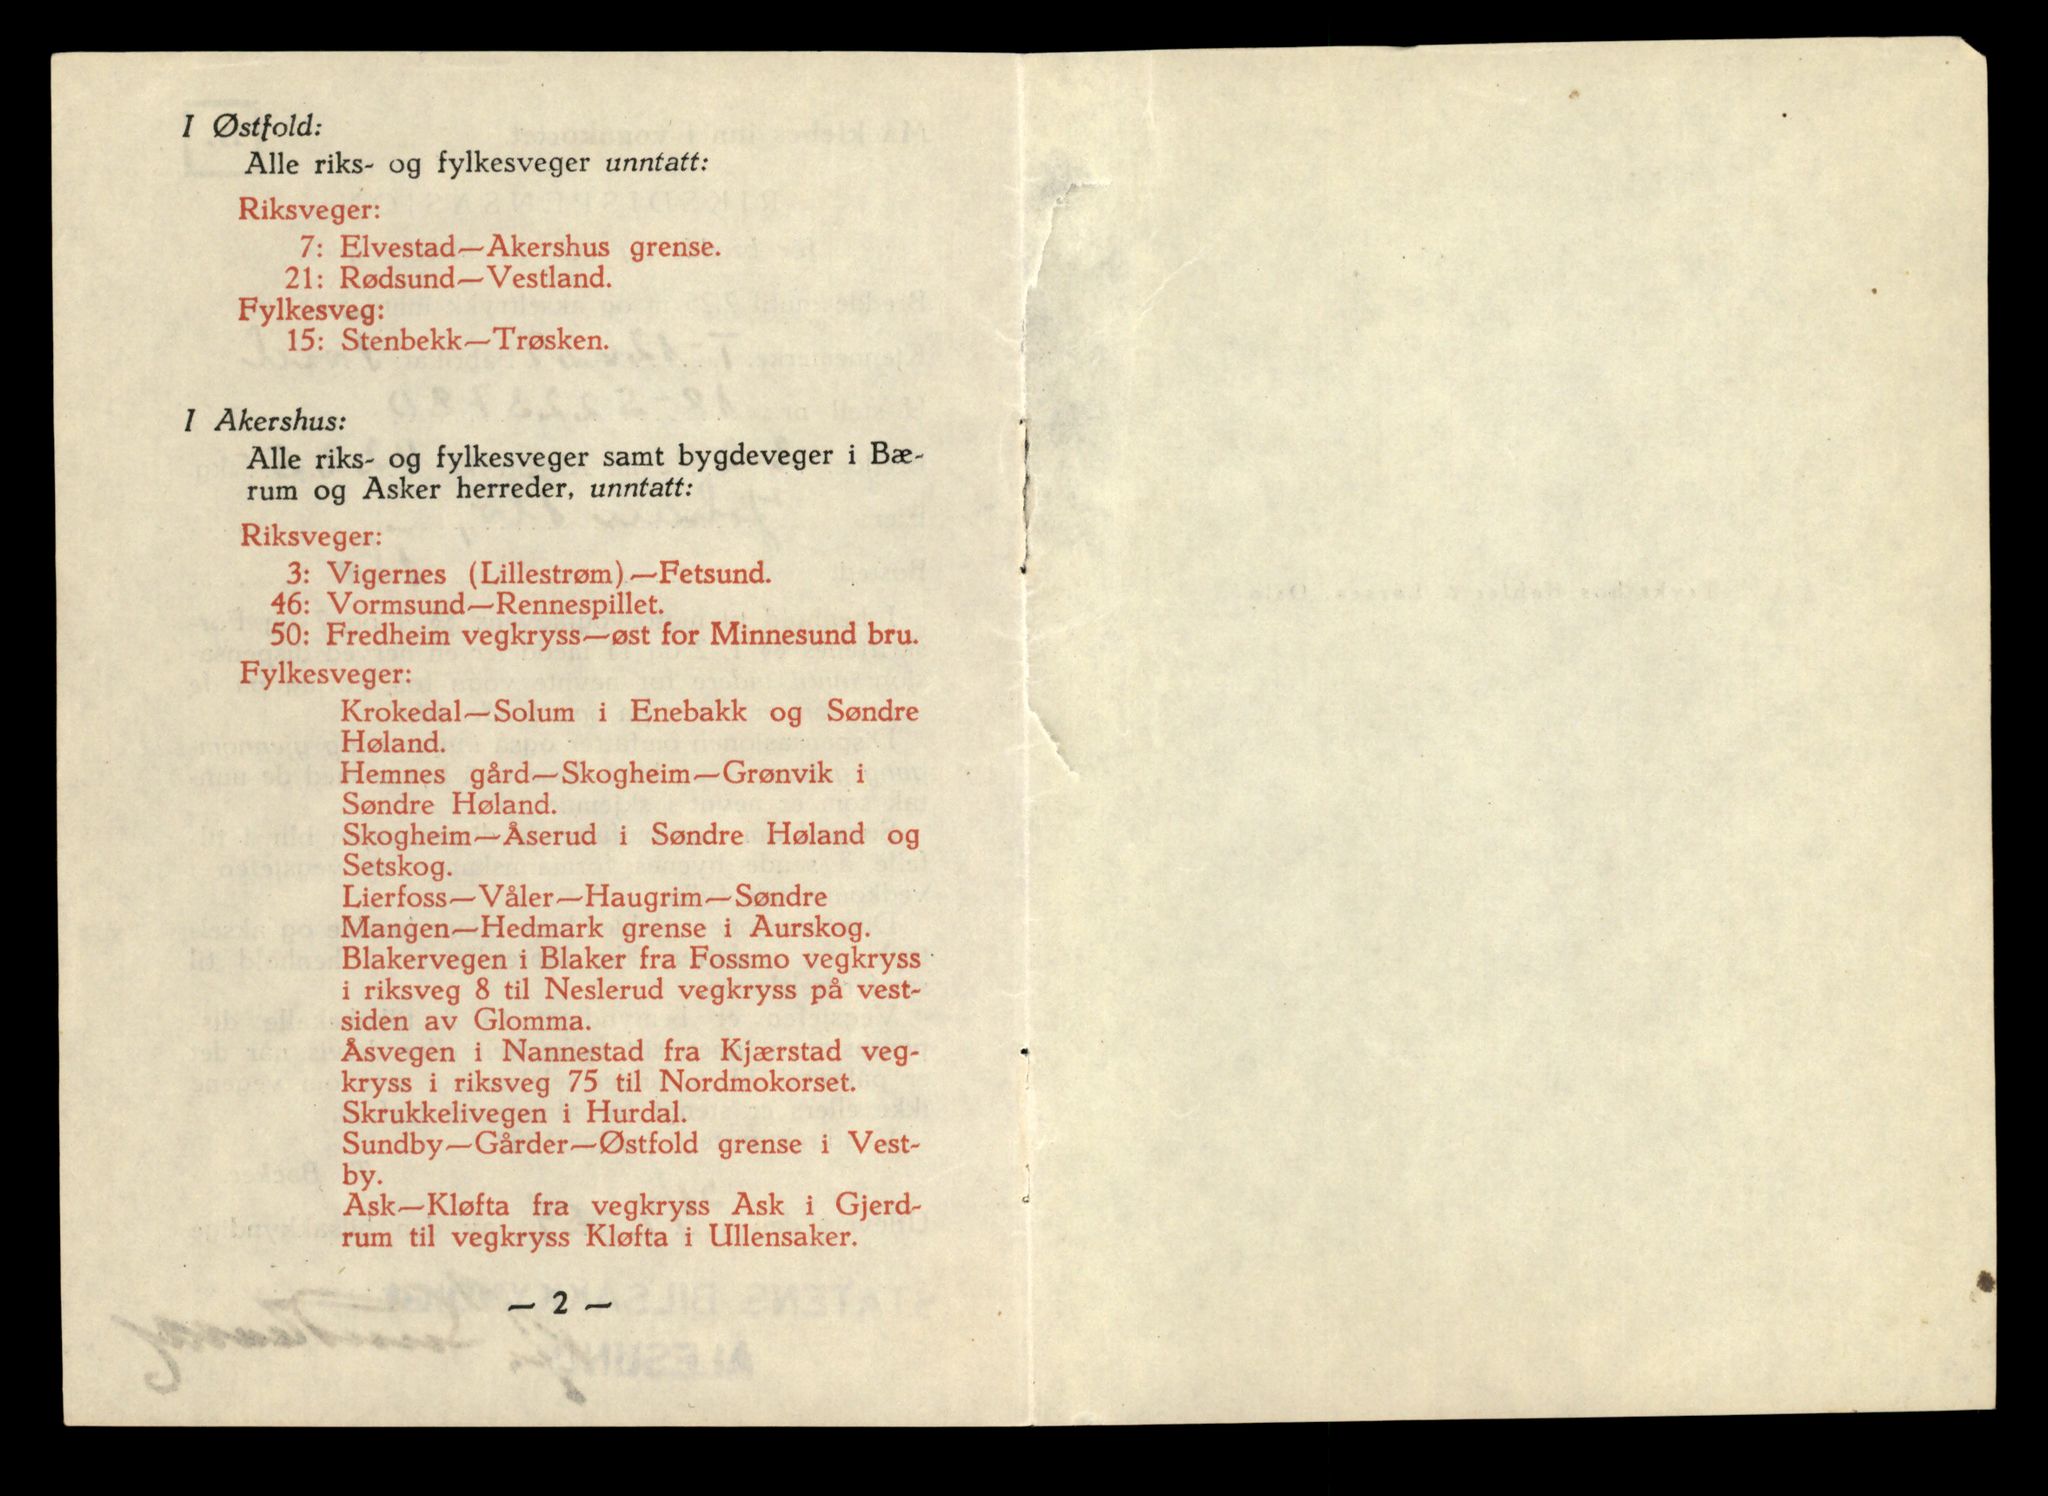 I Østfold:
Alle riks- og fylkesveger unntatt:
Riksveger:
7: Elvestad—Akershus grense.
21: Rødsund—Vestland.
Fylkesveg:
15: Stenbekk—Trøsken.
I Akershus:
Alle riks- og fylkesveger samt bygdeveger i Bæ-
rum og Asker herreder, unntatt:
Riksveger:
3: Vigernes (Lillestrøm)—Fetsund.
46: Vormsund—Rennespillet.
50: Fredheim vegkryss—øst for Minnesund bru.
Fylkesveger:
Krokedal—Solum i Enebakk og Søndre
Høland.
Hemnes gård—Skogheim—Grønvik i
Søndre Høland.
Skogheim—Åserud i Søndre Høland og
Setskog.
Lierfoss—Våler—Haugrim—Søndre
Mangen—Hedmark grense i Aurskog.
Blakervegen i Blaker fra Fossmo vegkryss
i riksveg 8 til Neslerud vegkryss på vest-
siden av Glomma.
Åsvegen i Nannestad fra Kjærstad veg-
kryss i riksveg 75 til Nordmokorset.
Skrukkelivegen i Hurdal.
Sundby—Gårder—Østfold grense i Vest-
by.
Ask—Kløfta fra vegkryss Ask i Gjerd-
rum til vegkryss Kløfta i Ullensaker.
— 2 —